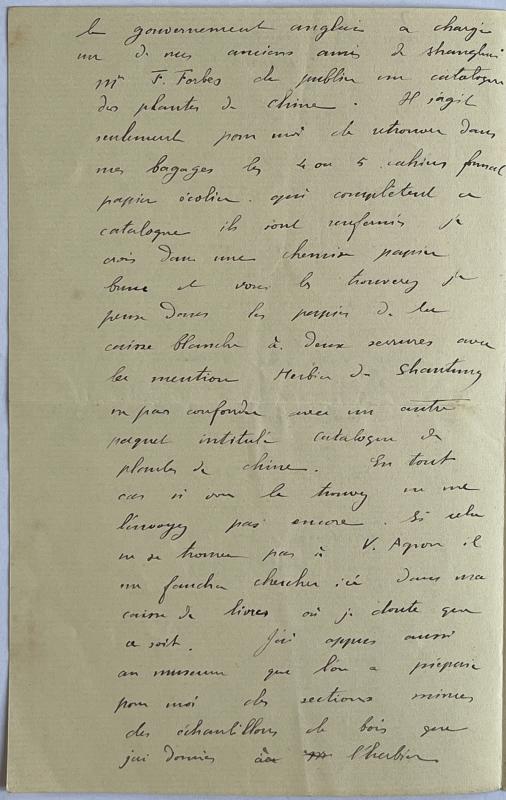 le gouvernement anglais a chargé
un de nos anciens amis de Shanghai
Mr F. Forbes de publier un catalogue
des plantes de Chine. Il s'agit
seulement pour moi de retrouver dans
mes bagages les 4 ou 5 cahiers format
papier écolier qui complètent ce
catalogue ils sont renfermés je
crois dans une chemise papier
brune et vous les trouverez je
pense dans les papiers de la
caisse blanche à deux serrures avec
la mention Herbier de Shantung
ne pas confondre avec un autre
paquet intitulé catalogue de
plantes de Chine. En tout
cas si vous le trouvez ne me
l'envoyez pas encore. Si cela
ne se trouve pas à V. Agron il
me faudra chercher ici dans ma
caisse de livres où je doute que
ce soit. J'ai appris aussi
au museum que l'on a préparé
pour moi des sections minces
des échantillons de bois que
j'ai donnés à l'herbier